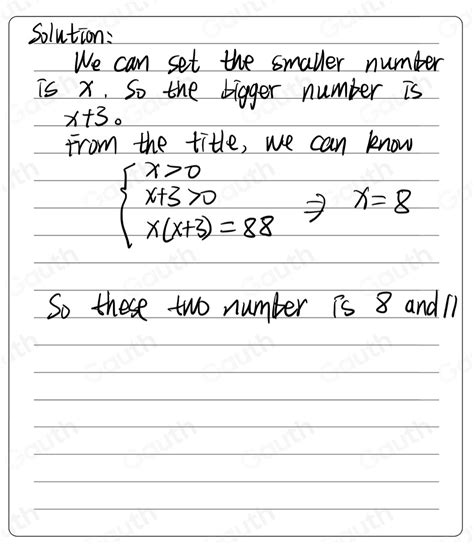 Solution:
We can set the smaller number
is x. So the bigger number is
x+3。
From the title, we can know
x>0
x+3>0
x(x+3)=88 ⇒ x=8
So these two number is 8 and 11